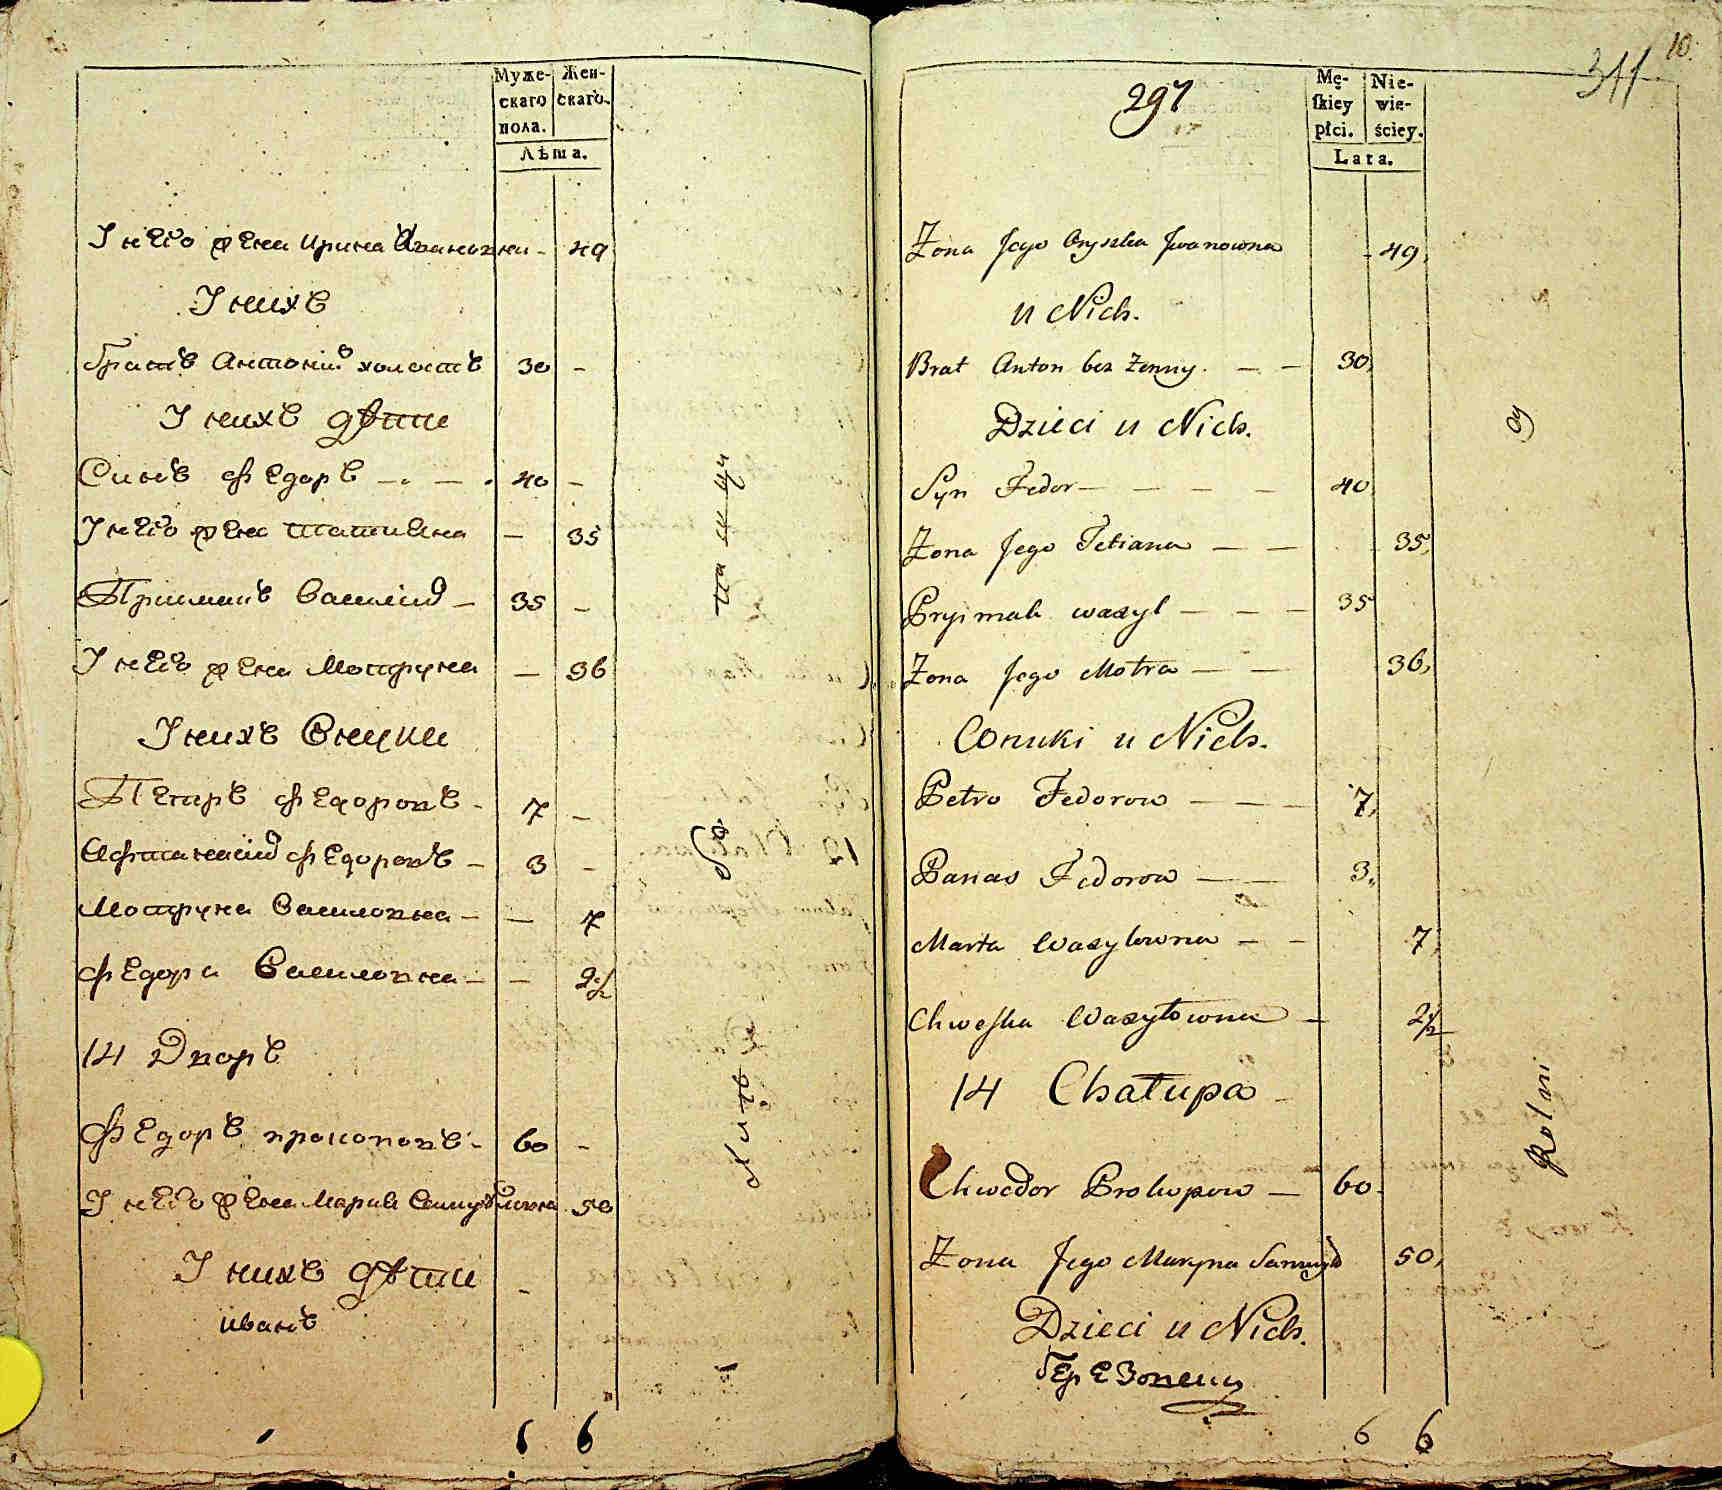 Муже-
скаго
пола.
Жен-
скаго.
Лѣта.
У него жена Ирина Ивановна - 49
У нихъ
Братъ Антоній холостъ 30 -
У нихъ дѣти
Синъ Федоръ - - 40 -
У него жена Татияна - 35
Приймакъ Василій - 35 -
У него жена Мотруна - 36
У нихъ Внуки
Петръ Федоровъ - 7 -
Афтанасій Федоровъ - 3 -
Мотруна Василовна - - 7
Федора Василовна - - 2 1/2
14 Дворъ
Федоръ Прокоповъ - 60 -
У него жена Мария 50
У нихъ дѣти -
иванъ
6 6
10.
311
297
Mę-
ſkiey
płci.
Nie-
wie-
ściey.
Lata.
Żona Jego Oryszka Jwanowna - 49,
u Nich.
Brat Anton bez Żenny. - - 30,
Dzieci u Nich.
Syn Fedor - - - - 40,
Żona Jego Tetiana - - 35,
Pryimak wasyl - - - 35
Żona Jego Motra - - 36,
Wnuki u Nich.
Petro Fedorow - - - 7,
Panas Fedorow - - 3,
Marta Wasylowna - - 7,
Chweſka Wasyłowna - 2 1/2
14 Chałupa -
Chwedor Prokopow - 60.
Żona Jego Maryna 50,
Dzieci u Nich.
6 6
Rolani